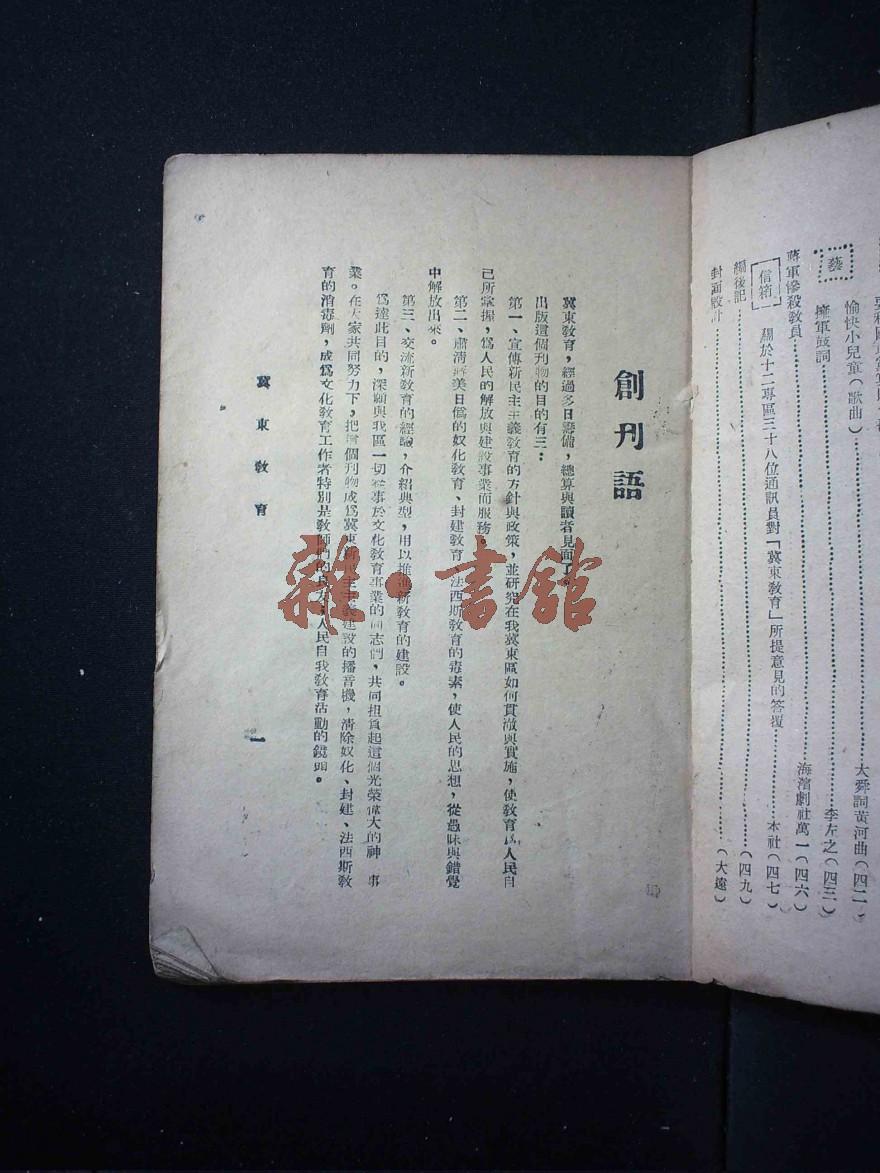 愉快小兒童(歌曲)大舜詞黃河曲(四二)
藝
擁軍鼓詞李左之(四三)
蔣軍慘殺教員海濱劇社萬一(四六)
信箱 關於十二專區三十八位通訊員對「冀東教育」所提意見的答覆本社(四七)
編後記(四九)
封面設計(大遠)
創刊語
冀東教育,經過多日籌備,總算與讀者見面了。
出版這個刊物的目的有三:
第一、宣傳新民主主義教育的方針與政策,並研究在我冀東區如何貫澈與實施,使教育爲人民自
己所掌握,爲人民的解放與建設事業而服務。
第二、肅清蔣美日僞的奴化教育、封建教育、法西斯教育的毒素,使人民的思想,從愚昧與錯覺
中解放出來。
第三、交流新教育的經驗,介紹典型,用以推進新教育的建設。
爲達此目的,深願與我區一切從事於文化教育事業的同志們,共同担負起這個光榮偉大的神 事
業。在大家共同努力下,把這個刊物成爲冀東新 主主義建設的播音機,清除奴化、封建、法西斯教
育的消毒劑,成爲文化教育工作者特別是教師們的良友, 人民自我教育活動的鏡頭。
冀東教育
一
雜·書館